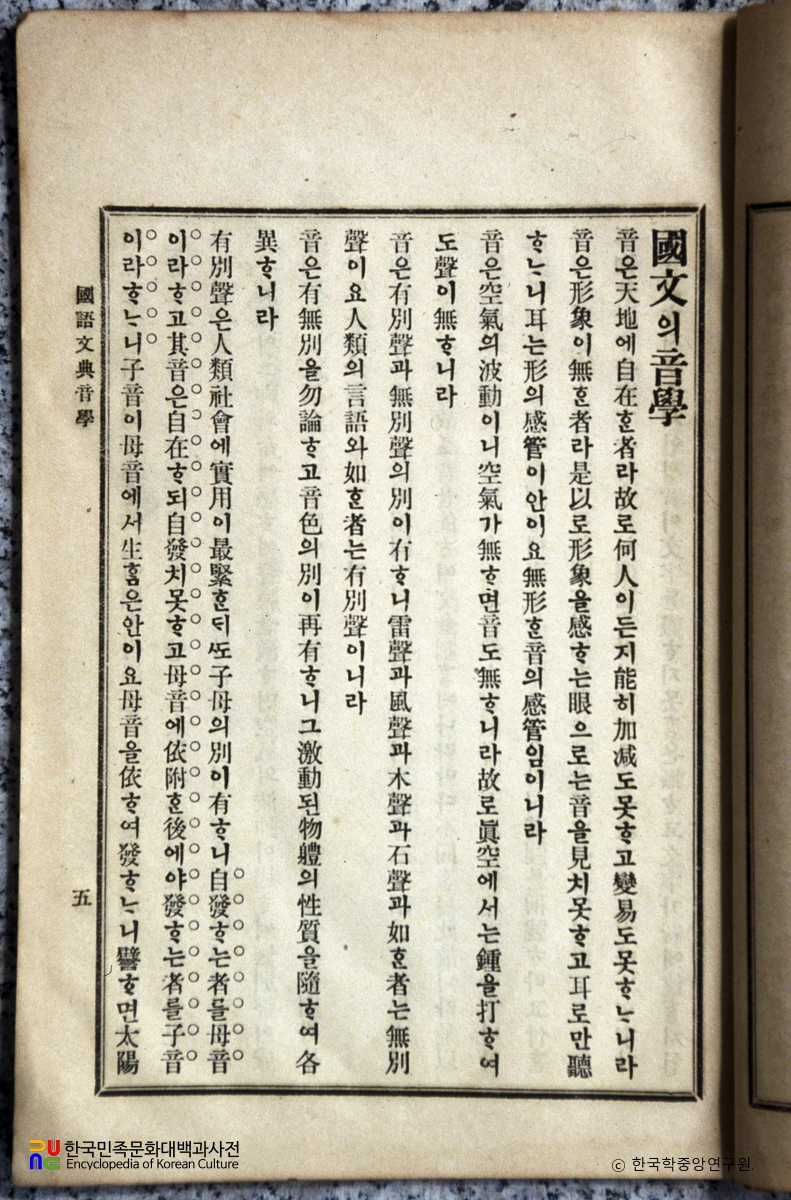 國文의音學
音은天地에自在ᄒᆞᆫ者라故로何人이든지能히加减도못ᄒᆞ고變易도못ᄒᆞᄂᆞ니라
音은形象이無ᄒᆞᆫ者라是以로形象을感ᄒᆞ는眼으로는音을見치못ᄒᆞ고耳로만聽
ᄒᆞᄂᆞ니耳는形의感管이안이요無形ᄒᆞᆫ音의感管임이니라
音은空氣의波動이니空氣가無ᄒᆞ면音도無ᄒᆞ니라故로眞空에서는鍾을打ᄒᆞ여
도聲이無ᄒᆞ니라
音은有別聲과無別聲의別이有ᄒᆞ니雷聲과風聲과木聲과石聲과如ᄒᆞᆫ者는無別
聲이요人類의言語와如ᄒᆞᆫ者는有別聲이니라
音은有無別을勿論ᄒᆞ고音色의別이再有ᄒᆞ니그激動된物軆의性質을隨ᄒᆞ여各
異ᄒᆞ니라
有別聲은人類社會에實用이最緊ᄒᆞᆫ듸ᄯᅩ子母의別이有ᄒᆞ니自發ᄒᆞ는者를母音
이라ᄒᆞ고其音은自在ᄒᆞ되自發치못ᄒᆞ고母音에依附ᄒᆞᆫ後에야發ᄒᆞ는者를子音
이라ᄒᆞᄂᆞ니子音이母音에서生ᄒᆞᆷ은안이요母音을依ᄒᆞ여發ᄒᆞᄂᆞ니譬ᄒᆞ면太陽
國語文典音學
五
한국민족문화대백과사전
Encyclopedia of Korean Culture
ⓒ 한국학중앙연구원.